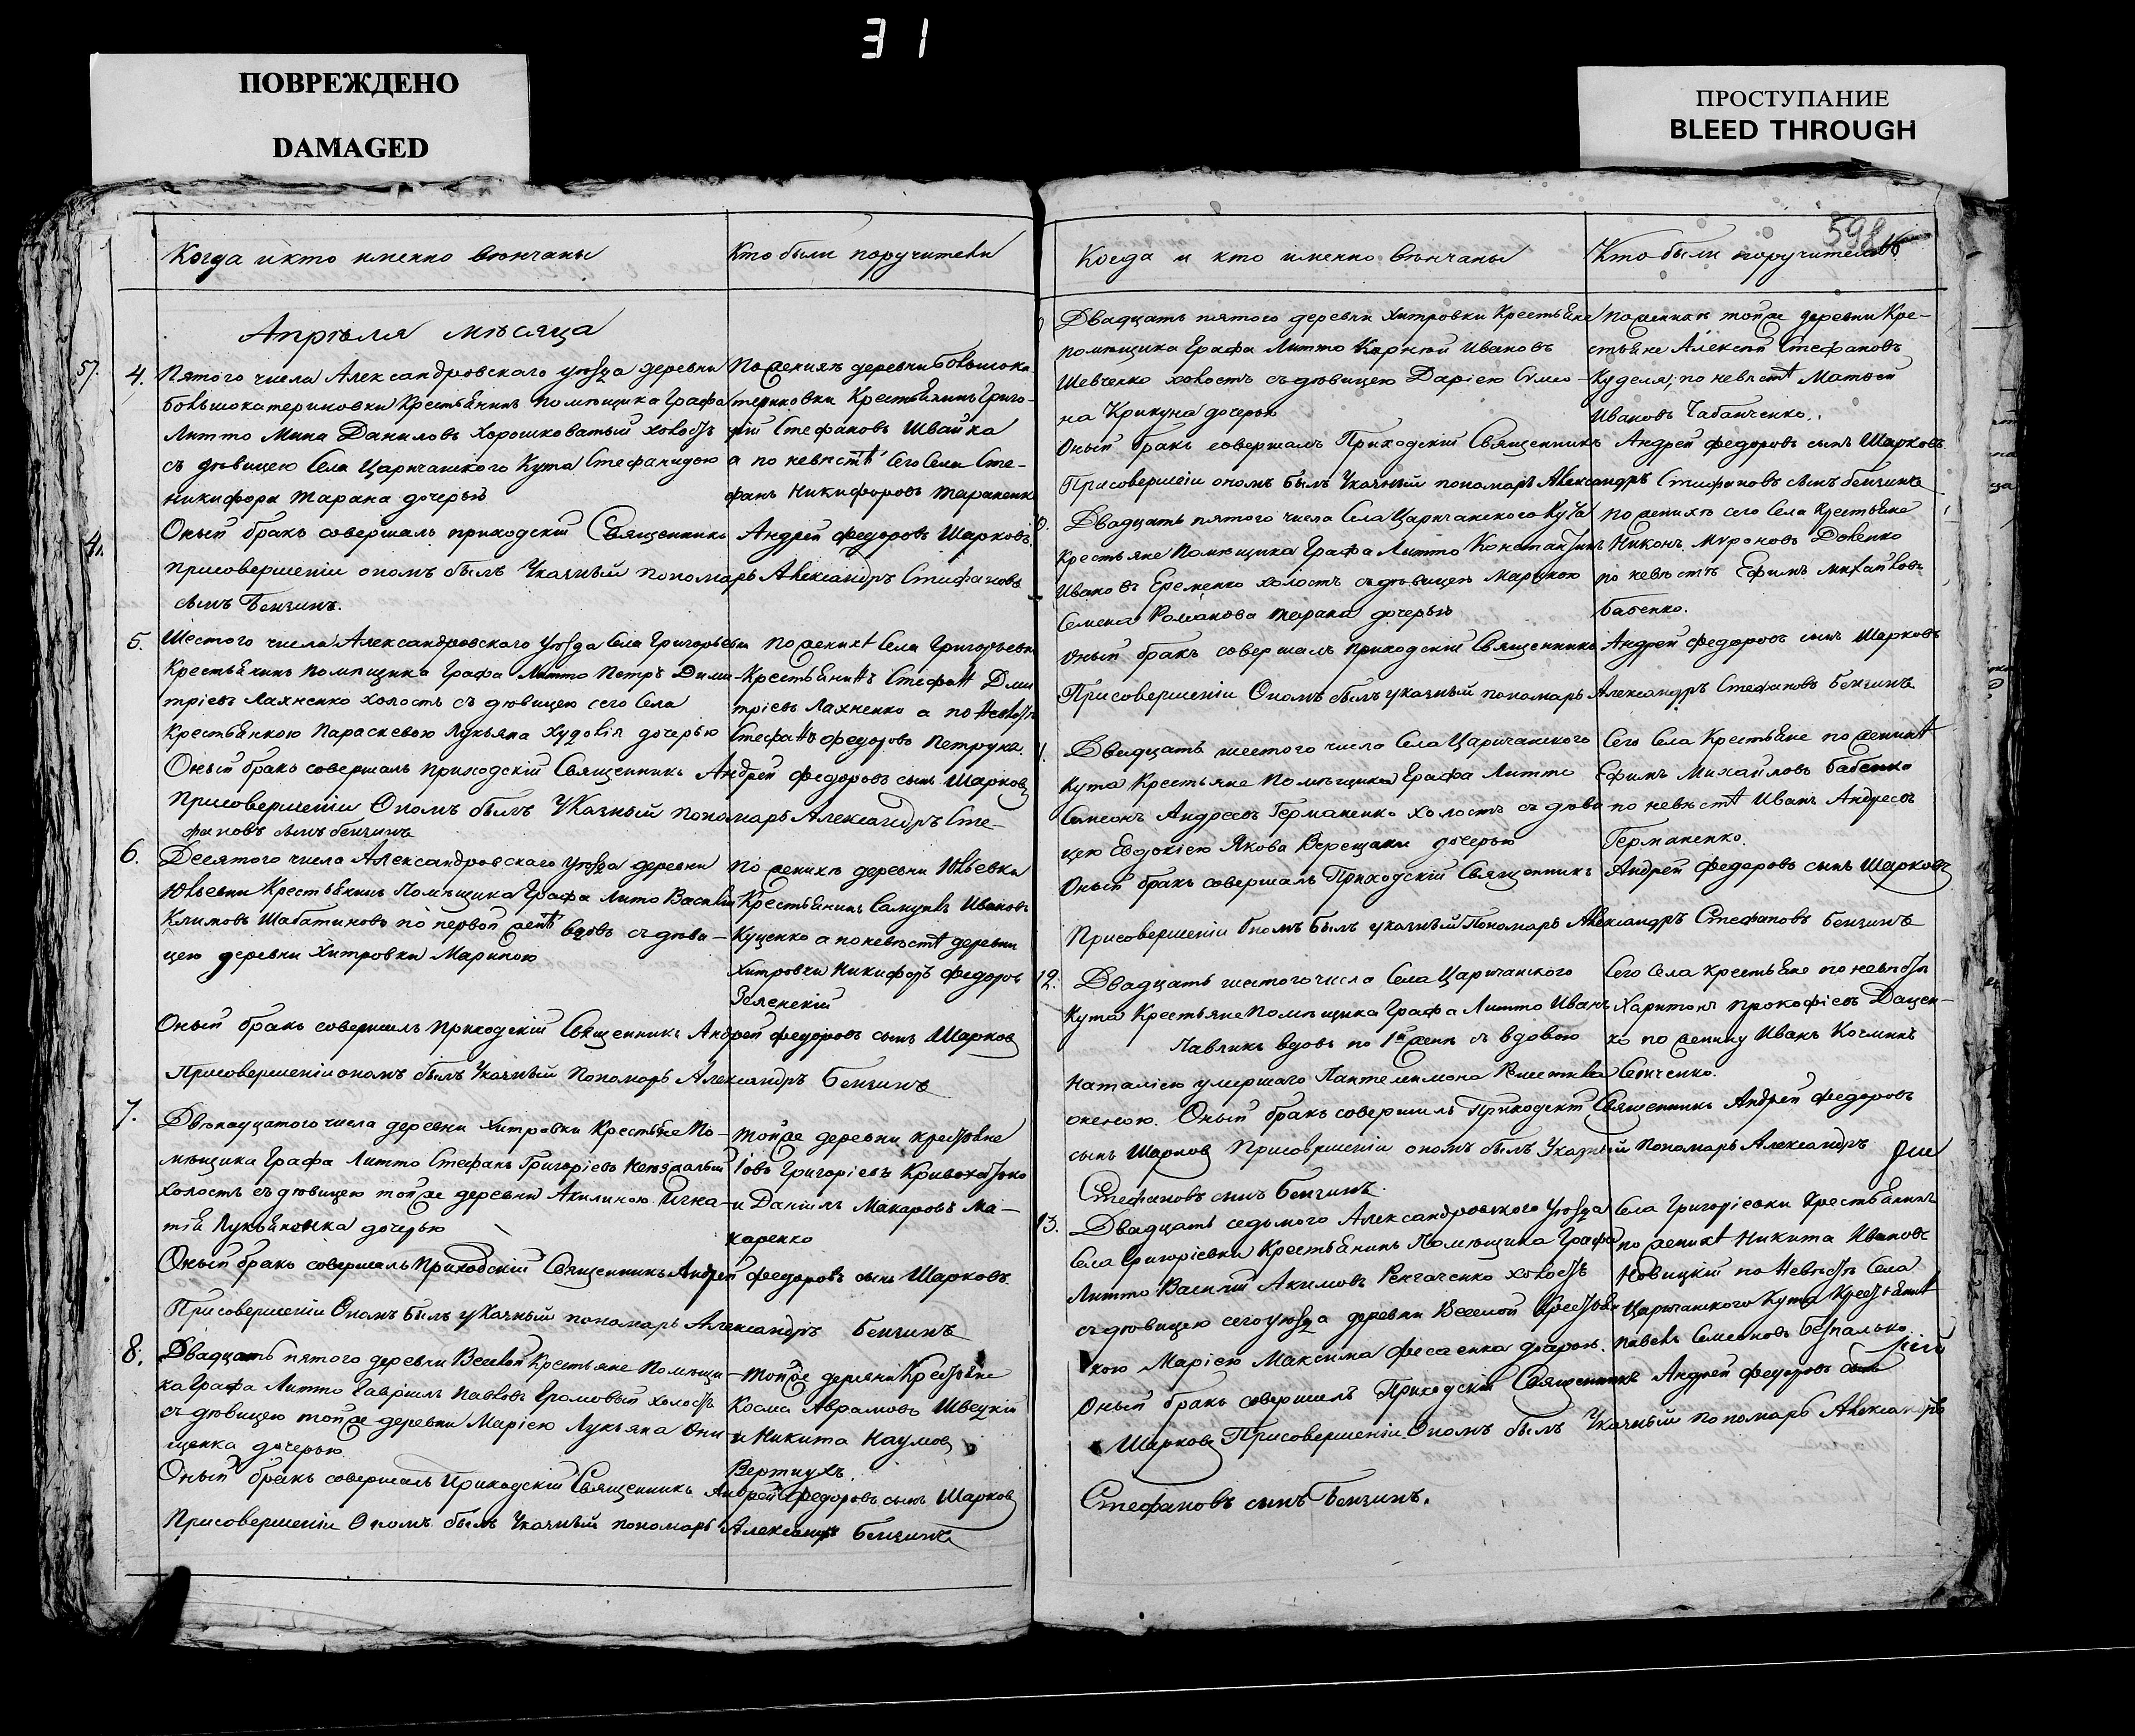 31
ПОВРЕЖДЕНО
DAMAGED
ПРОСТУПАНИЕ
BLEED THROUGH
598
Когда и кто именно вѣнчаны
Кто были поручители
Апрѣля мѣсяца
4. Пятого числа Александровскаго уѣзда деревни
большокатериновки Крестьянинъ помѣщика Графа
Литто Мина Даниловъ Хорошковатый холостъ
съ дѣвицею Села Царичанского Кута Стефанидою
никифора тарана дочерью
По женихѣ деревни большока
териновки Крестьянинъ Григо-
рій Стефановъ Швайка
а по невѣстѣ Сего Села Сте-
фанъ Никифоровъ тараненко
Оный бракъ совершалъ приходскій Священникъ Андрей федоровъ Шарковъ.
присовершеніи ономъ былъ Указный пономарь Александръ Стифановъ
сынъ Бенчинъ.
5. Шестого числа Александровскаго уѣзда Села Григорьевки
Крестьянинъ помѣщика Графа Литто Петръ Дими-
тріевъ Лахненко холостъ съ дѣвицею сего Села
Крестьянкою Параскевою Лукьяна Худолія дочерью
По женихѣ Села Григорьевки
Крестьянинъ Стефанъ Дми
тріевъ Лахненко а по невѣстѣ
Стефанъ федоровъ Петруня.
Оный бракъ совершалъ приходскій Священникъ Андрей федоровъ сынъ Шарковъ
присовершеніи Ономъ былъ Указный пономарь Александръ Сте-
фановъ сынъ бенчинъ
6. Десятого числа Александровскаго уѣзда деревни
Юльевки Крестьянинъ Помѣщика Графа Лито Василій
Климовъ Шабатиновъ по первой женѣ вдовъ съ дѣви-
цею деревни Хитровки Мариною
по женихѣ деревни Юльевки
Крестьянинъ Самуилъ Ивановъ
Куценко а по невѣстѣ деревни
Хитровки Никифоръ федоровъ
Зеленскій
Оный бракъ совершилъ приходскій Священникъ Андрей федоровъ сынъ Шарковъ
Присовершеніи ономъ былъ Указный Пономарь Александръ Бенчинъ
7. Двѣнадцатого числа деревни Хитровки Крестьяне По-
мѣщика Графа Литто Стефанъ Григоріевъ
холостъ съ дѣвицею тойже деревни Акилиною Игна-
тія Лукьяненка дочерью
тойже деревни крестьяне
Іовъ Григоріевъ
и Даніилъ Макаровъ Ма-
каренко
Оный бракъ совершалъ приходскій Священникъ Андрей федоровъ сынъ Шарковъ
Присовершеніи Ономъ былъ указный пономарь Александръ Бенчинъ
8. Двадцать пятого деревни Веселой Крестьяне Помѣщи
ка Графа Литто Гавріилъ Павловъ Громовый холостъ
съ дѣвицею тойже деревни Маріею Лукьяна Они
щенка дочерью
тойже деревни Крестьяне
Косма Аврамовъ Швецкій
и Никита Наумовъ
Вертиухъ.
Оный бракъ совершалъ приходскій Священникъ Андрей федоровъ сынъ Шарковъ
Присовершеніи Ономъ былъ Указный пономарь Александръ Бенчинъ
Когда и кто именно вѣнчаны
Кто были поручители
Двадцать пятого деревни Хитровки Крестьяне
помѣщика Графа Литто Корнѣй Ивановъ
Шевченко холостъ съ дѣвицею Даріею Симео-
на Крикуна дочерью
По женихѣ тойже деревни Кре-
стьяне Алексѣй Стефановъ
Куделя; по невѣстѣ Матвѣй
Ивановъ Чабанченко.
Оный бракъ совершалъ Приходскій Священникъ Андрей федоровъ сынъ Шарковъ
Присовершеніи ономъ былъ Указный пономарь Александръ Стифановъ сынъ бенчинъ
Двадцать пятого числа Села Царичанского Кута
Крестьяне Помѣщика Графа Литто Константинъ
Ивановъ Еременко холостъ съ дѣвицею Марѳою
Семена Романова тарана дочерью
по женихѣ сего Села Крестьяне
Никонъ Мироновъ Доленко
по невѣстѣ Ефимъ Михайловъ
бабенко.
Оный бракъ совершалъ приходскій Священникъ Андрей федоровъ сынъ Шарковъ
Присовершеніи Ономъ былъ указный пономарь Александръ Стефановъ Бенчинъ
Двадцать шестого числа Села Царичанского
Кута Крестьяне Помѣщика Графа Литто
Самсонъ Андреевъ Германенко холостъ съ дѣви
цею Евдокіею Якова Верещаки дочерью
Сего Села Крестьяне по женихѣ
Ефимъ Михайловъ бабенко
по невѣстѣ Иванъ Андреевъ
Германенко.
Оный бракъ совершалъ Приходскій Священникъ Андрей федоровъ сынъ Шарковъ
Присовершеніи ономъ былъ указный Пономарь Александръ Стефановъ Бенчинъ
12. Двадцать шестого числа Села Царичанского
Кута Крестьяне Помѣщика Графа Литто Иванъ
Павликъ вдовъ по 1й женѣ съ вдовою
Наталіею умершаго Пантелимона
женою.
Сего Села Крестьяне по невѣстѣ
Харитонъ Прокофіевъ Дацен-
ко по жениху Иванъ
Левченко.
Оный бракъ совершилъ Приходскій Священникъ Андрей федоровъ
сынъ Шарковъ Присовершеніи ономъ былъ Указный пономарь Александръ
Стефановъ сынъ Бенчинъ.
13. Двадцать седьмого Александровского уѣзда
Села Григоріевки Крестьянинъ Помѣщика Графа
Литто Василій Акимовъ Ренгаченко холостъ
съ дѣвицею сего уѣзда деревни Веселой Крестьян
кою Маріею Максима Фесаенка дочерью.
Села Григоріевки Крестьянинъ
по женихѣ Никита Ивановъ
Новицкій по невѣстѣ Села
Царичанского Кута Крестьянинъ
павелъ Семеновъ безпалько
Оный бракъ совершилъ Приходскій Священникъ Андрей федоровъ сынъ
Шарковъ Присовершеніи Ономъ былъ Указный пономарь Александръ
Стефановъ сынъ Бенчинъ.